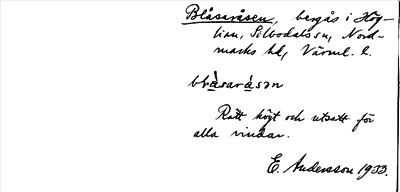 Blåsaråsen, bergås i Hög-
lian, Silbodals sn, Nord-
marks hd, Värml. l.
blàsaråsən
Rätt högt och utsatt för
alla vindar.
E. Andersson 1933.